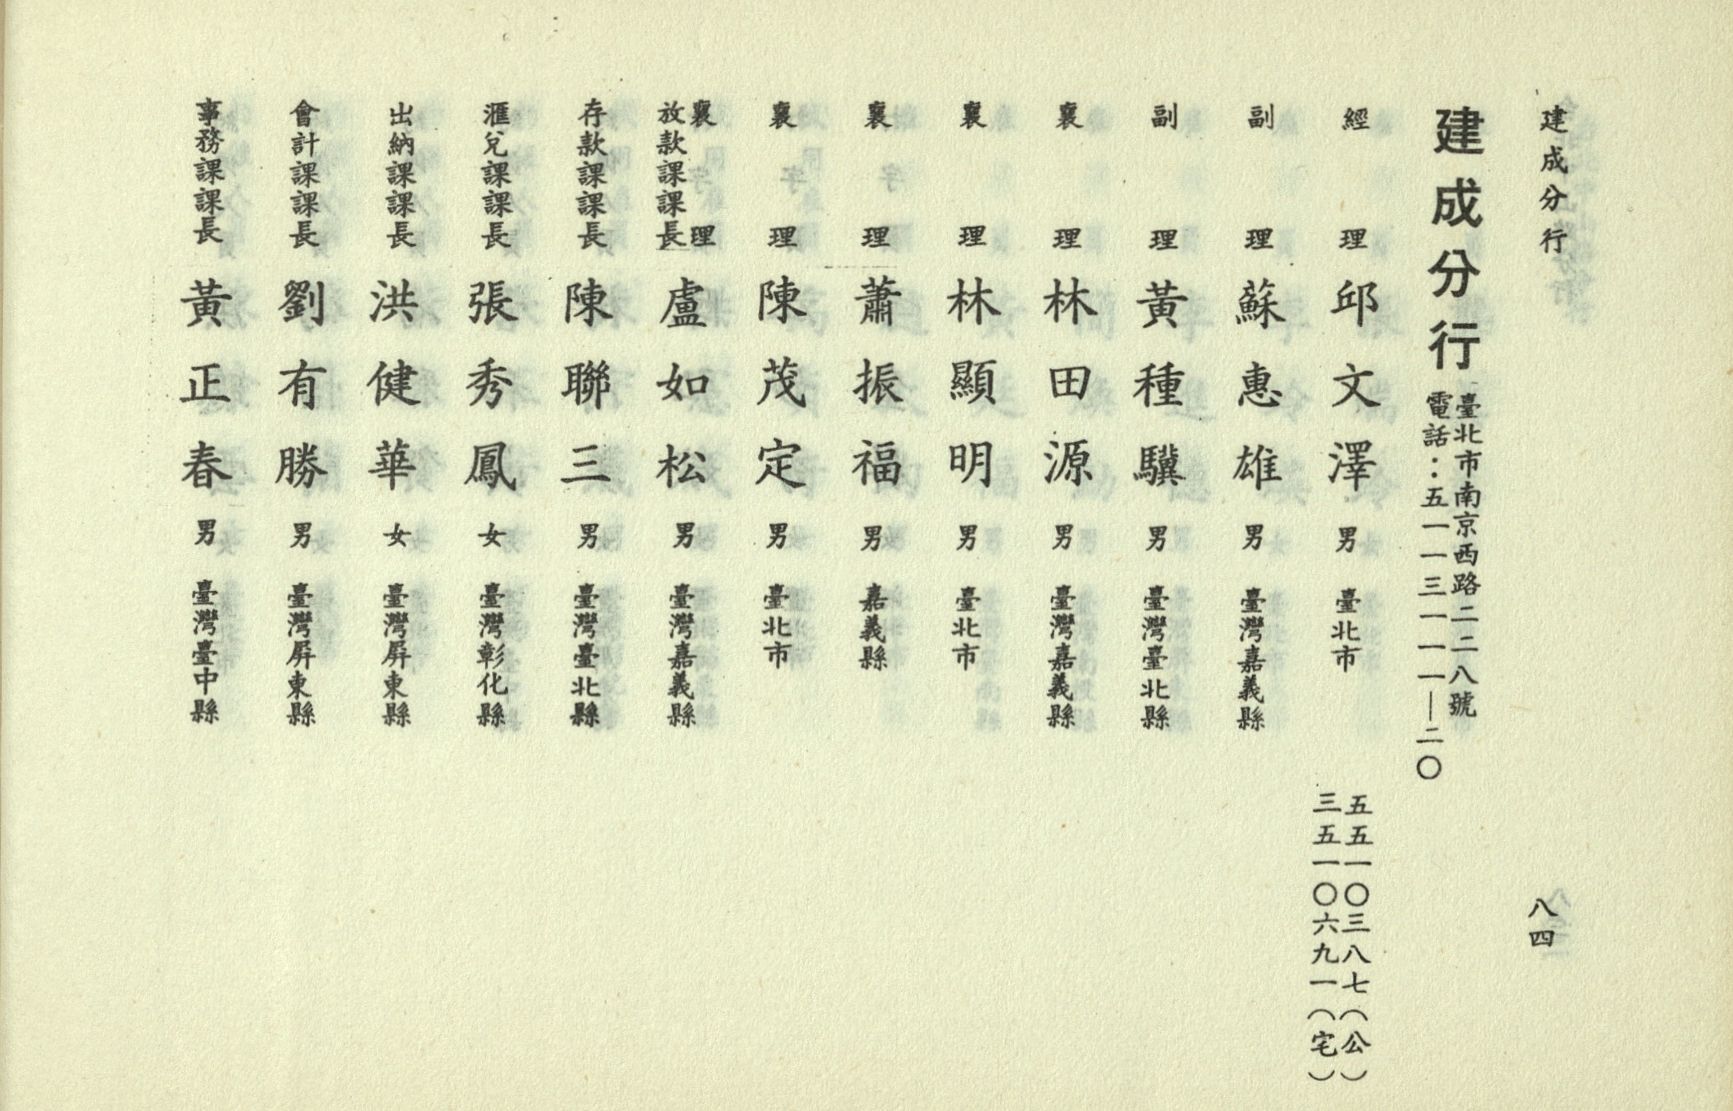 建成分行
八四
建成分行
臺北市南京西路二二八號
電話：五一一三一一一—二〇
經理 邱文澤 男 臺北市
五五一〇三八七（公）
三五一〇六九一（宅）
副理 蘇惠雄 男 臺灣嘉義縣
副理 黃種驥 男 臺灣臺北縣
襄理 林田源 男 臺灣嘉義縣
襄理 林顯明 男 臺北市
襄理 蕭振福 男 嘉義縣
襄理 陳茂定 男 臺北市
襄理
放款課課長 盧如松 男 臺灣嘉義縣
存款課課長 陳聯三 男 臺灣臺北縣
滙兌課課長 張秀鳳 女 臺灣彰化縣
出納課課長 洪健華 女 臺灣屏東縣
會計課課長 劉有勝 男 臺灣屏東縣
事務課課長 黃正春 男 臺灣臺中縣